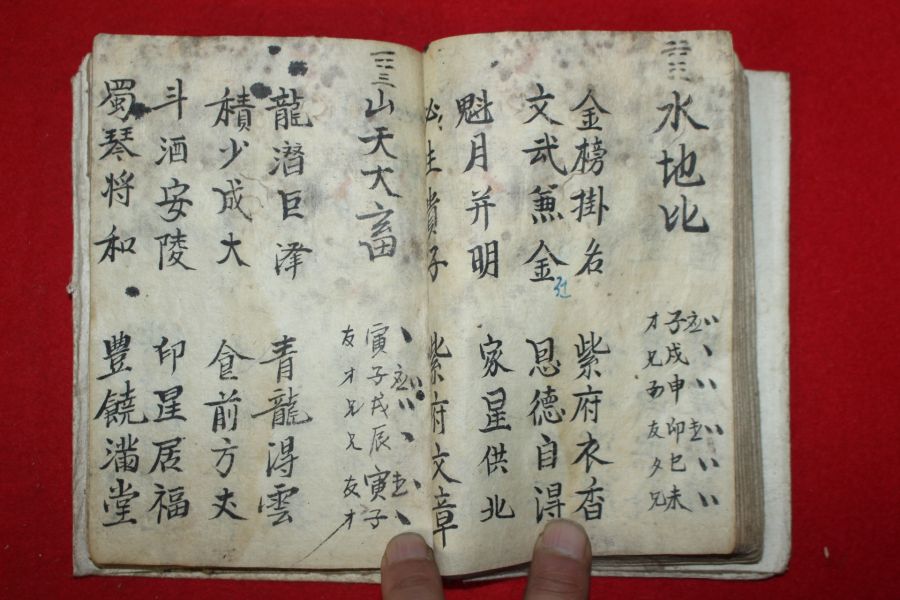 水地比
应 世
子戌申卯巳未
金榜掛名 紫府衣香
文武兼金 恩德自淂
魁月并明 家星供北
必生貴子 紫府文章
山天大畜
应 世
寅子戌辰寅子
友才兄兄友才
龍潛巨泽 青龍淂雲
積少成大 食前方丈
斗酒安陵 印星居福
蜀琴将和 豊饒滿堂